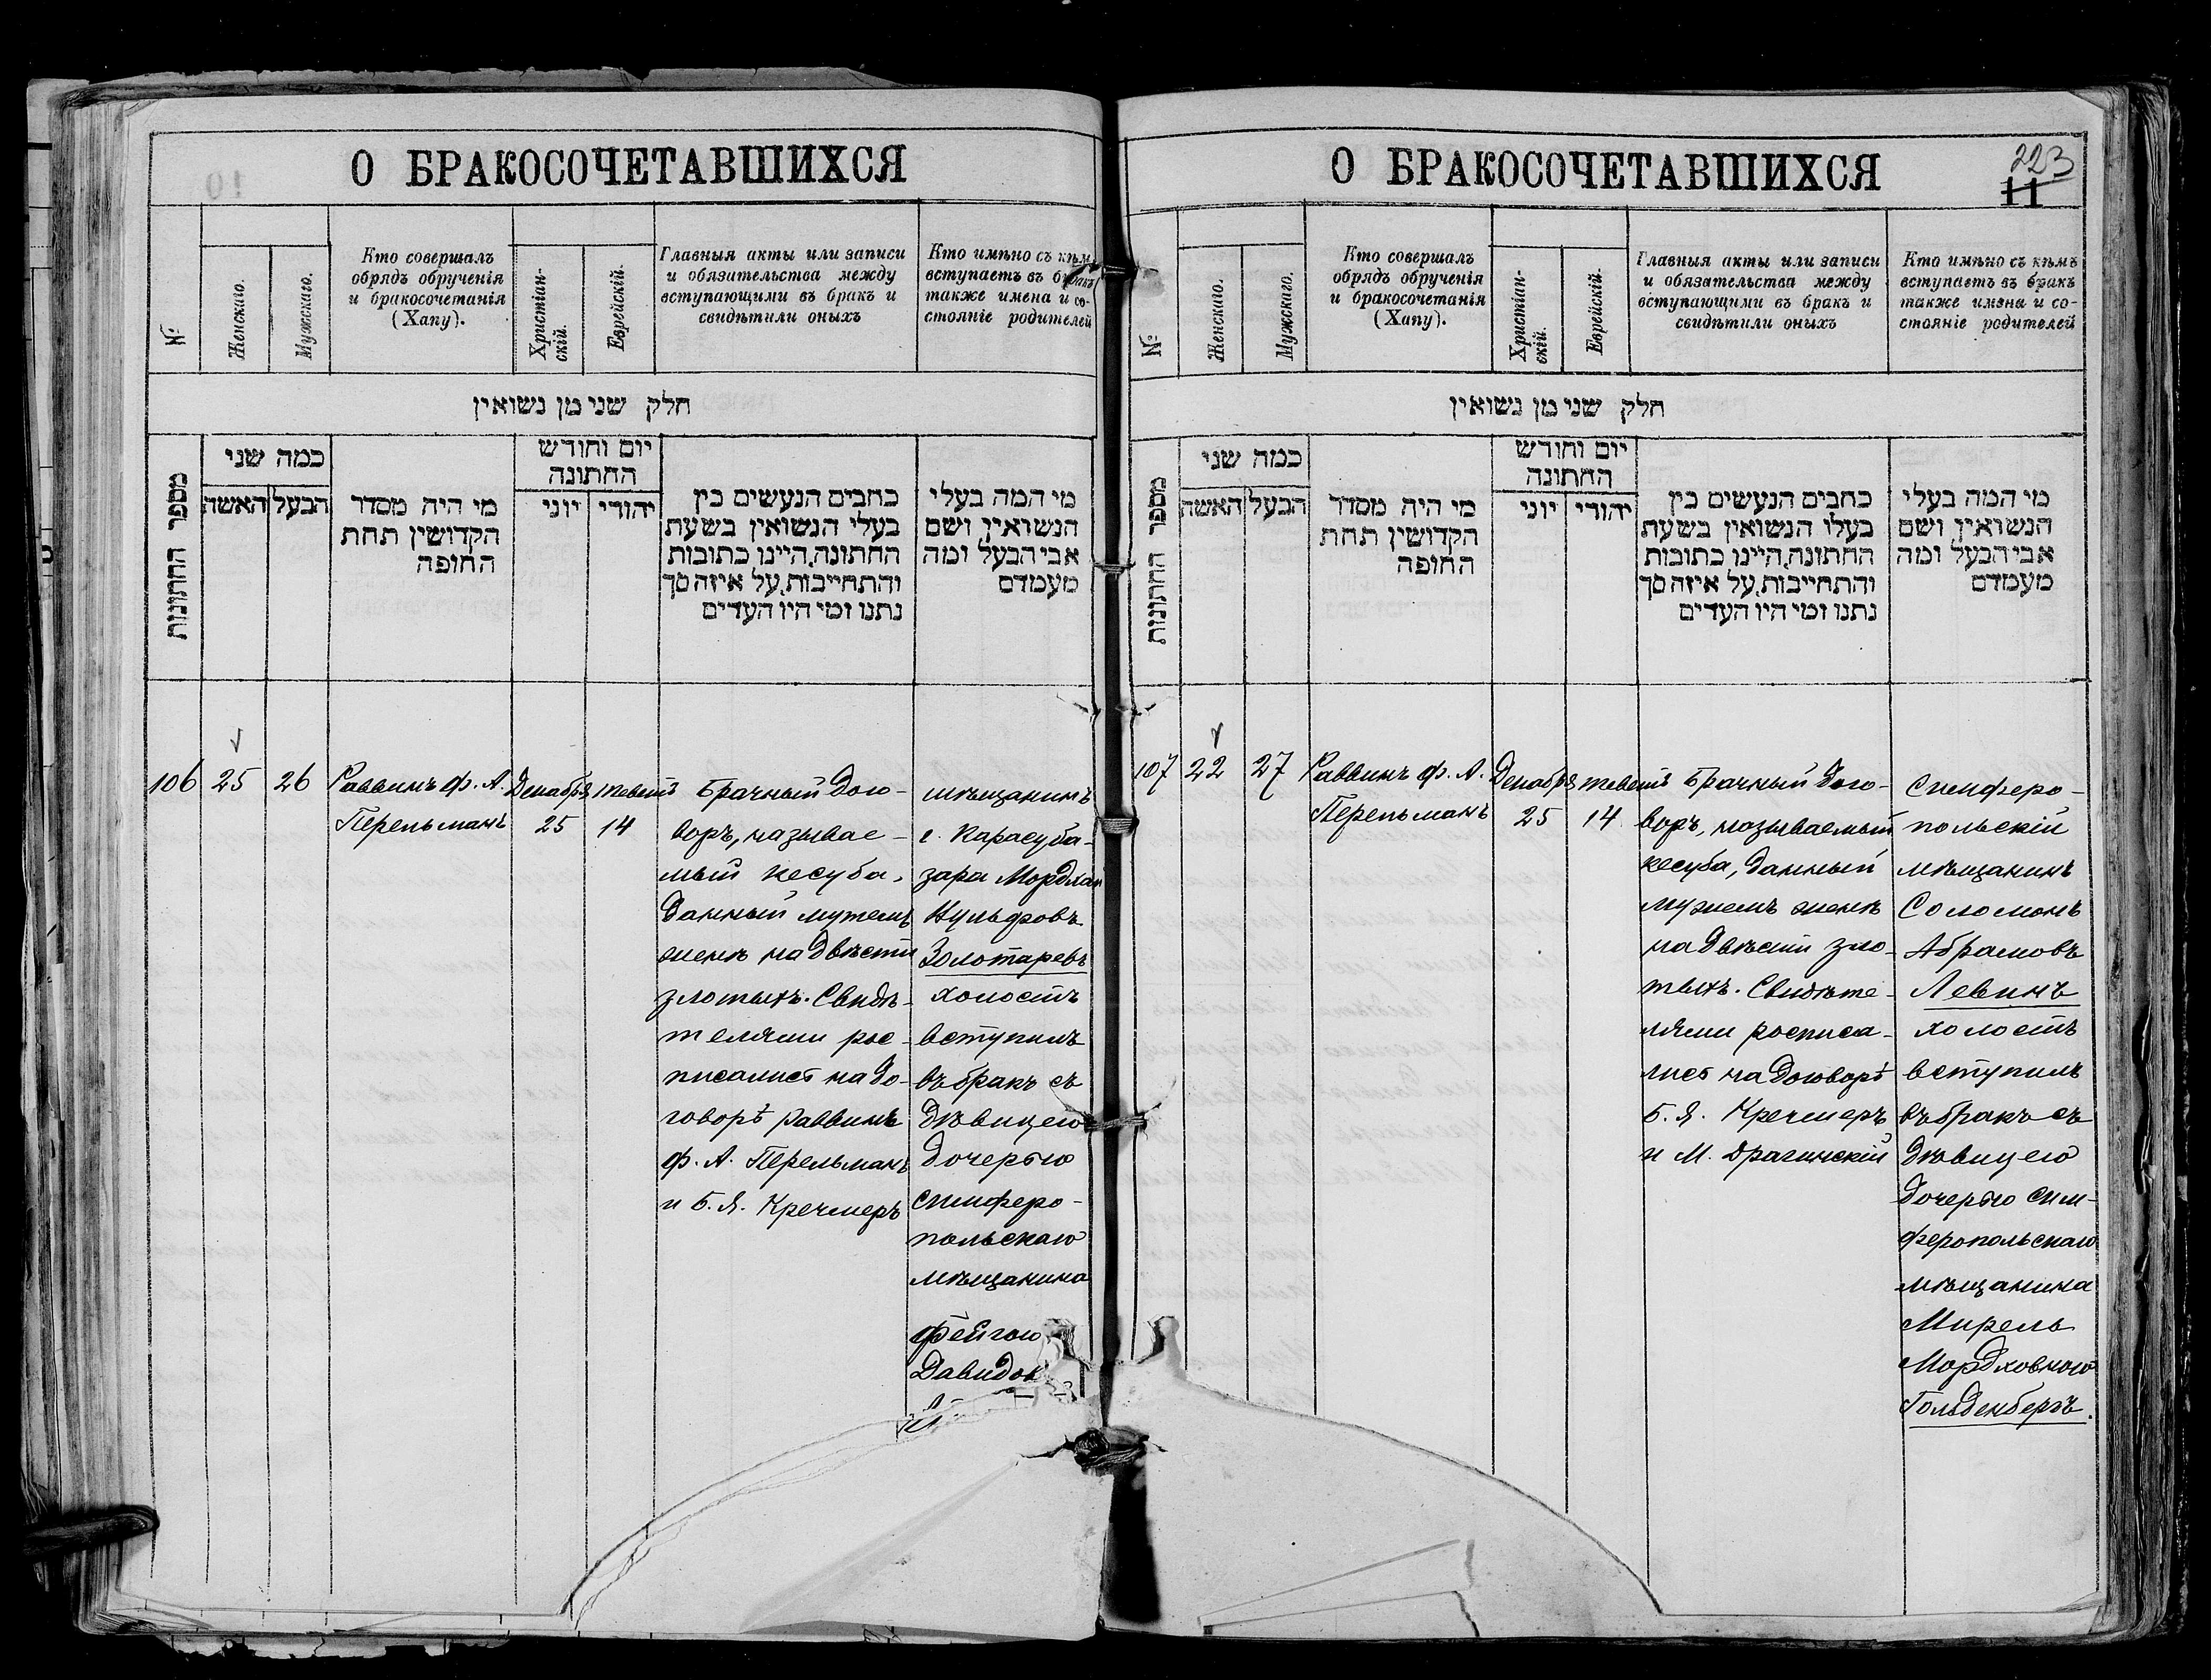 О БРАКОСОЧЕТАВШИХСЯ
№
Женскаго.
Мужскаго.
Кто совершалъ
обрядъ обрученія
и бракосочетанія
(Хапу).
Христіан-
скій.
Еврейскій.
Главныя акты или записи
и обязательства между
вступающими въ бракъ и
свидѣтили оныхъ
Кто имѣно съ кѣмъ
вступаетъ въ бракъ
также имена и со-
стояніе родителей
חלק שני מן נשואין
מספר החתונות
כמה שני
האשה
הבעל
מי היה מסדר
הקדושין תחת
החופה
יום וחודש
החתונה
יוני
יהודי
כתבים הנעשים בין
בעלי הנשואין בשעת
החתונה, היינו כתובות
והתחייבות, על איזה סך
נתנו ומי היו העדים
מי המה בעלי
הנשואין ושם
אבי הבעל ומה
מעמדם
106
25
26
Раввинъ Ф. А.
Перельманъ
Декабря
25
Тевейтъ
14
Брачный дого-
воръ, называе-
мый кесуба,
данный мужемъ
женѣ на двѣсти
злотыхъ. Свидѣ-
телями рос-
писались на до-
говорѣ раввинъ
Ф. А. Перельманъ
и Б. Я. Кречмеръ
мѣщанинъ
г. Карасуба-
зара Мордхай
Нульфовъ
Золотаревъ
холостъ
вступилъ
въ бракъ съ
дѣвицею
дочерью
симферо-
польскаго
мѣщанина
Фейгою
Давидов
О БРАКОСОЧЕТАВШИХСЯ
223
11
№
Женскаго.
Мужскаго.
Кто совершалъ
обрядъ обрученія
и бракосочетанія
(Хапу).
Христіан-
скій.
Еврейскій.
Главныя акты или записи
и обязательства между
вступающими въ бракъ и
свидѣтили оныхъ
Кто имѣно съ кѣмъ
вступаетъ въ бракъ
также имэна и со-
стояніе родителей
חלק שני מן נשואין
מספר החתונות
כמה שני
האשה
הבעל
מי היה מסדר
הקדושין תחת
החופה
יום וחודש
החתונה
יוני
יהודי
כתבים הנעשים בין
בעלי הנשואין בשעת
החתונה, היינו כתובות
והתחייבות, על איזה סך
נתנו ומי היו העדים
מי המה בעלי
הנשואין ושם
אבי הבעל ומה
מעמדם
107
22
27
Раввинъ Ф. А.
Перельманъ
Декабря
25
тевейтъ
14
Брачный дого-
воръ, называемый
кесуба, данный
мужемъ женѣ
на двѣсти зло-
тыхъ. Свидѣте-
лями росписа-
лись на договорѣ
Б. Я. Кречмеръ
и М. Драгинскій
Симферо-
польскій
мѣщанинъ
Соломонъ
Абрамовъ
Левинъ
холостъ
вступилъ
въ бракъ съ
дѣвицею
дочерью сим-
феропольскаго
мѣщанина
Мирель
Мордховною
Гольденбергъ.